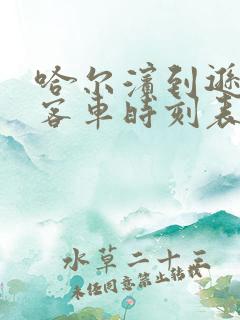 哈尔滨到逊
客车时刻表
水草二十五
未经同意禁止转载